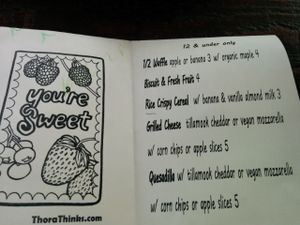 You're
Sweet
ThoraThinks.com
12 & under only
1/2 Waffle apple or banana 3 w/ organic maple 4
Biscuit & Fresh Fruit 4
Rice Crispy Cereal w/ banana & vanilla almond milk 3
Grilled Cheese tillamook cheddar or vegan mozzarella
w/ corn chips or apple slices 5
Quesadilla w/ tillamook cheddar or vegan mozzarella
w/ corn chips or apple slices 5